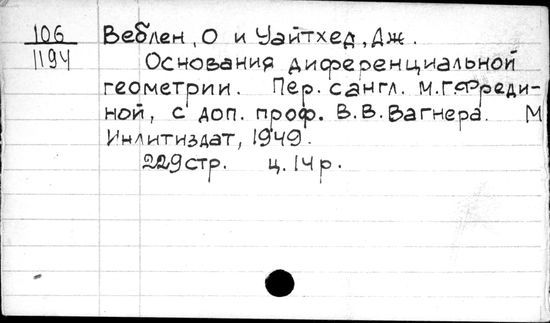 106
1194
Веблен, О и Уайтхед, Дж.
Основания диференциальной
геометрии. Пер. с англ. М.Г.Фреди-
ной, с доп. проф. В.В.Вагнера. М
Инлитиздат, 1949.
229стр. ц. 14р.